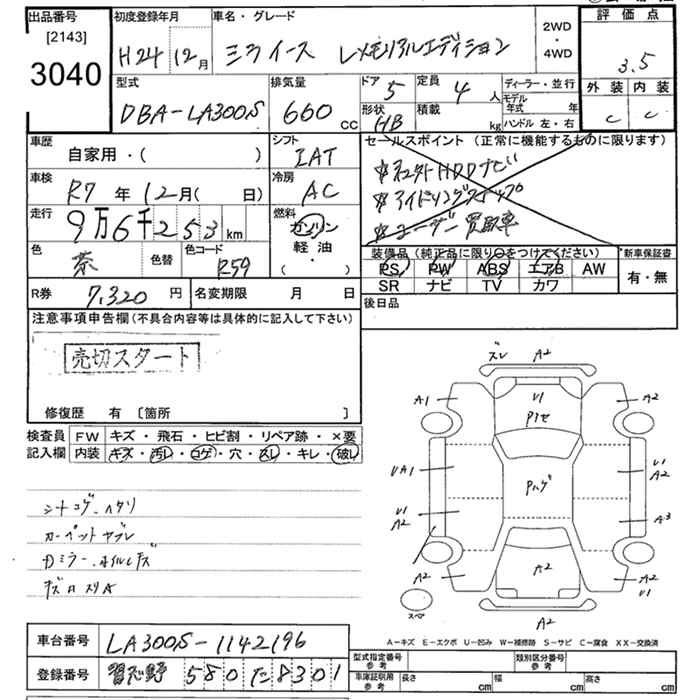 出品番号 初度登録年月 車名・グレード 2WD・4WD 評価点
[2143]
3040 H24 12月 ミライース Lメモリアルエディション 3.5
型式 排気量 ドア 5 定員 4人 ディーラー・並行 外装 内装
DBA-LA300S 660cc 形状 HB 積載 kg モデル年式 年 ハンドル 左・右 C C
車歴 自家用・( ) シフト IAT セールスポイント (正常に機能するものに限ります)
車検 R7年 12月( 日) 冷房 AC ☆社外HDDナビ
走行 9万6千253km 燃料 ガソリン ☆アイドリングストップ
軽油・( ) ☆ユーザー買取車
色 茶 色替 色コード R59 装備品 (純正品に限り○をつけてください) 新車保証書
PS PW ABS エアB AW 有・無
SR ナビ TV カワ
R券 7,320円 名変期限 月 日 後日品
注意事項申告欄(不具合内容等は具体的に記入して下さい)
売切スタート
修復歴 有 [箇所 ]
検査員 FW キズ・飛石・ヒビ割・リペア跡・×要
記入欄 内装 キズ・汚レ・コゲ・穴・スレ・キレ・破レ
シートコゲ・ヘタリ
カーペットヤブレ
ズレ A2
A1 U1 A2
Pハゲ
UA1 U1 A2
U1 A2 A3
A2 A2 A2 U1
スペア A2
A-キズ E-エクボ U-凹み W-補修跡 S-サビ C-腐食 XX-交換済
車台番号 LA300S-1142196 型式指定番号 参考 類別区分番号 参考
登録番号 習志野 580 た 8301 車庫証明用 参考 長さ cm 幅 cm 高さ cm